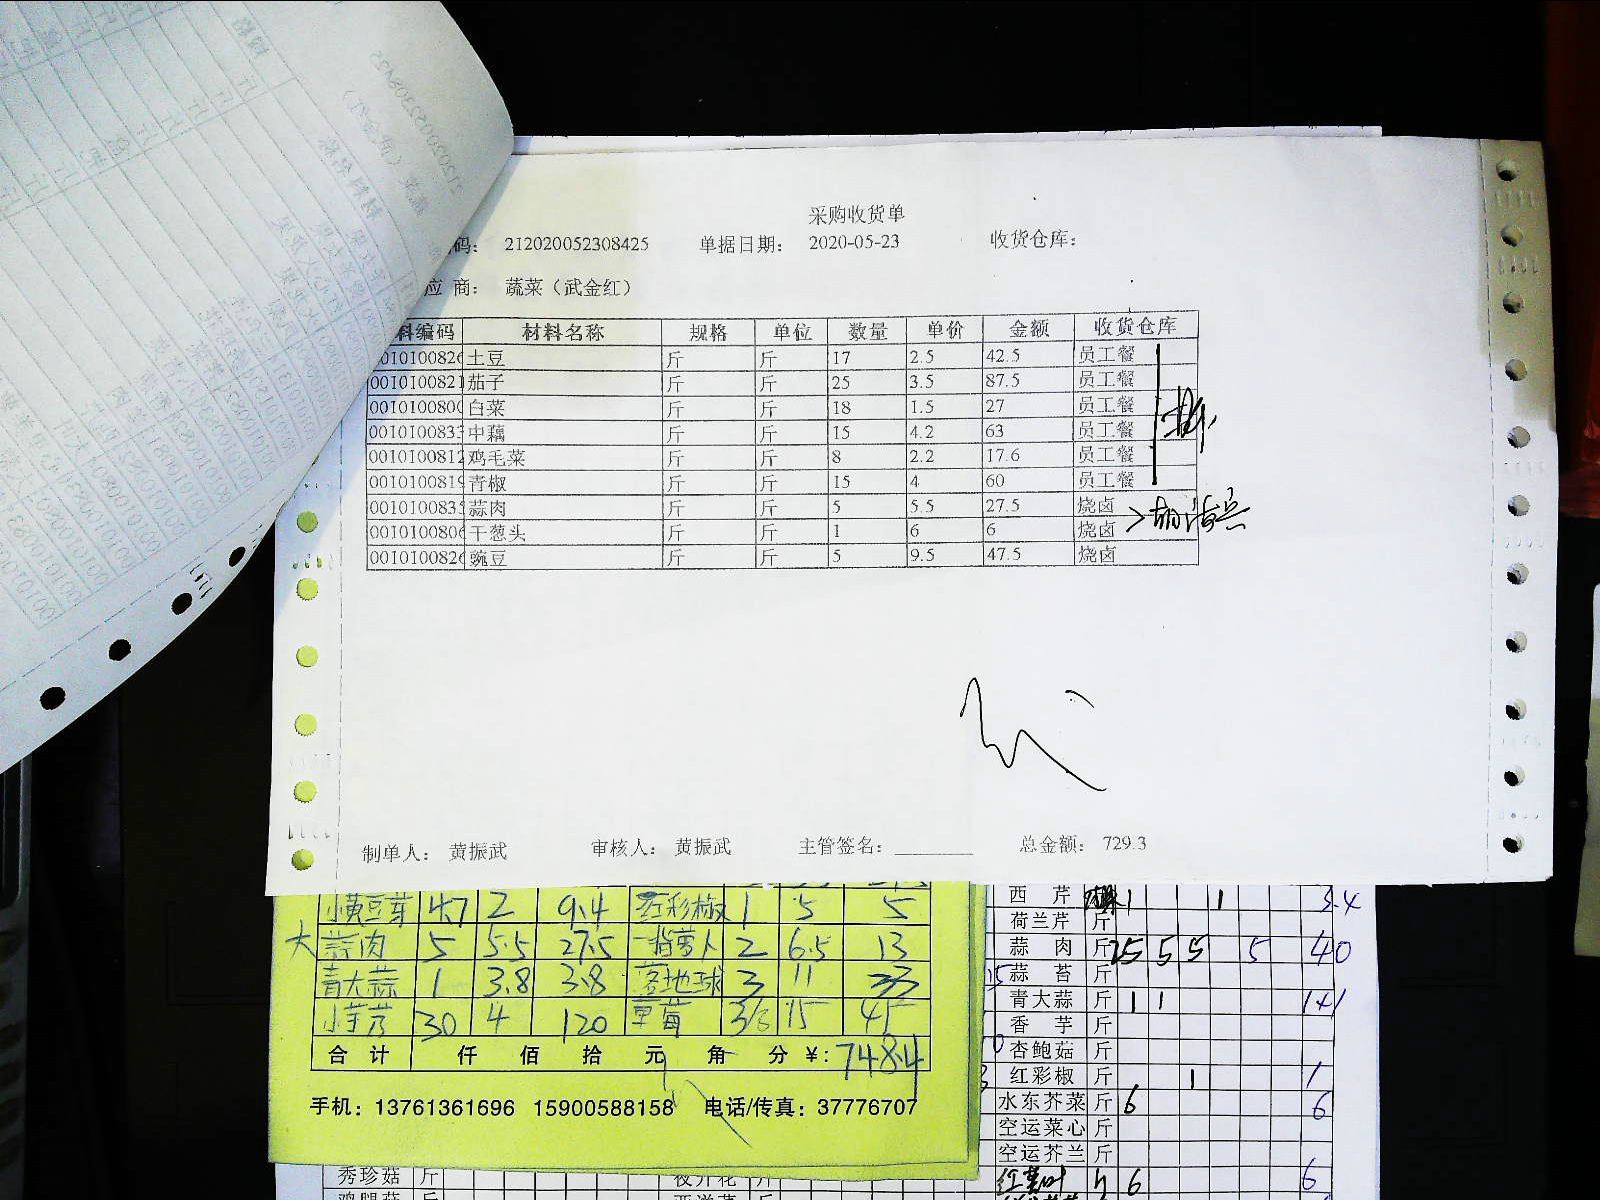 采购收货单
码： 212020052308425 单据日期： 2020-05-23 收货仓库：
应 商： 蔬菜（武金红）
料编码 材料名称 规格 单位 数量 单价 金额 收货仓库
0010100826 土豆 斤 斤 17 2.5 42.5 员工餐
0010100821 茄子 斤 斤 25 3.5 87.5 员工餐
0010100800 白菜 斤 斤 18 1.5 27 员工餐
0010100833 中藕 斤 斤 15 4.2 63 员工餐
0010100812 鸡毛菜 斤 斤 8 2.2 17.6 员工餐
0010100819 青椒 斤 斤 15 4 60 员工餐
0010100835 蒜肉 斤 斤 5 5.5 27.5 烧卤
0010100806 干葱头 斤 斤 1 6 6 烧卤
0010100826 豌豆 斤 斤 5 9.5 47.5 烧卤
制单人： 黄振武 审核人： 黄振武 主管签名： 总金额： 729.3
小黄豆芽 4.7 2 9.4 红彩椒 1 5 5
大 蒜肉 5 5.5 27.5 2 6.5 13
青大蒜 1 3.8 3.8 3 11 33
小芋艿 30 4 120 草莓 15 45
合 计 仟 佰 拾 元 角 分 ¥： 748.4
手机：13761361696 15900588158 电话/传真：37776707
西 芹 1 1 3.4
荷兰芹 斤
蒜 肉 斤 25 5 5 5 40
蒜 苔 斤
青大蒜 斤 1 1 1+1
香 芋 斤
杏鲍菇 斤
红彩椒 斤 1 1
水东芥菜 斤 6 6
空运菜心 斤
空运芥兰 斤
6 6
秀珍菇 斤 夜开花 斤